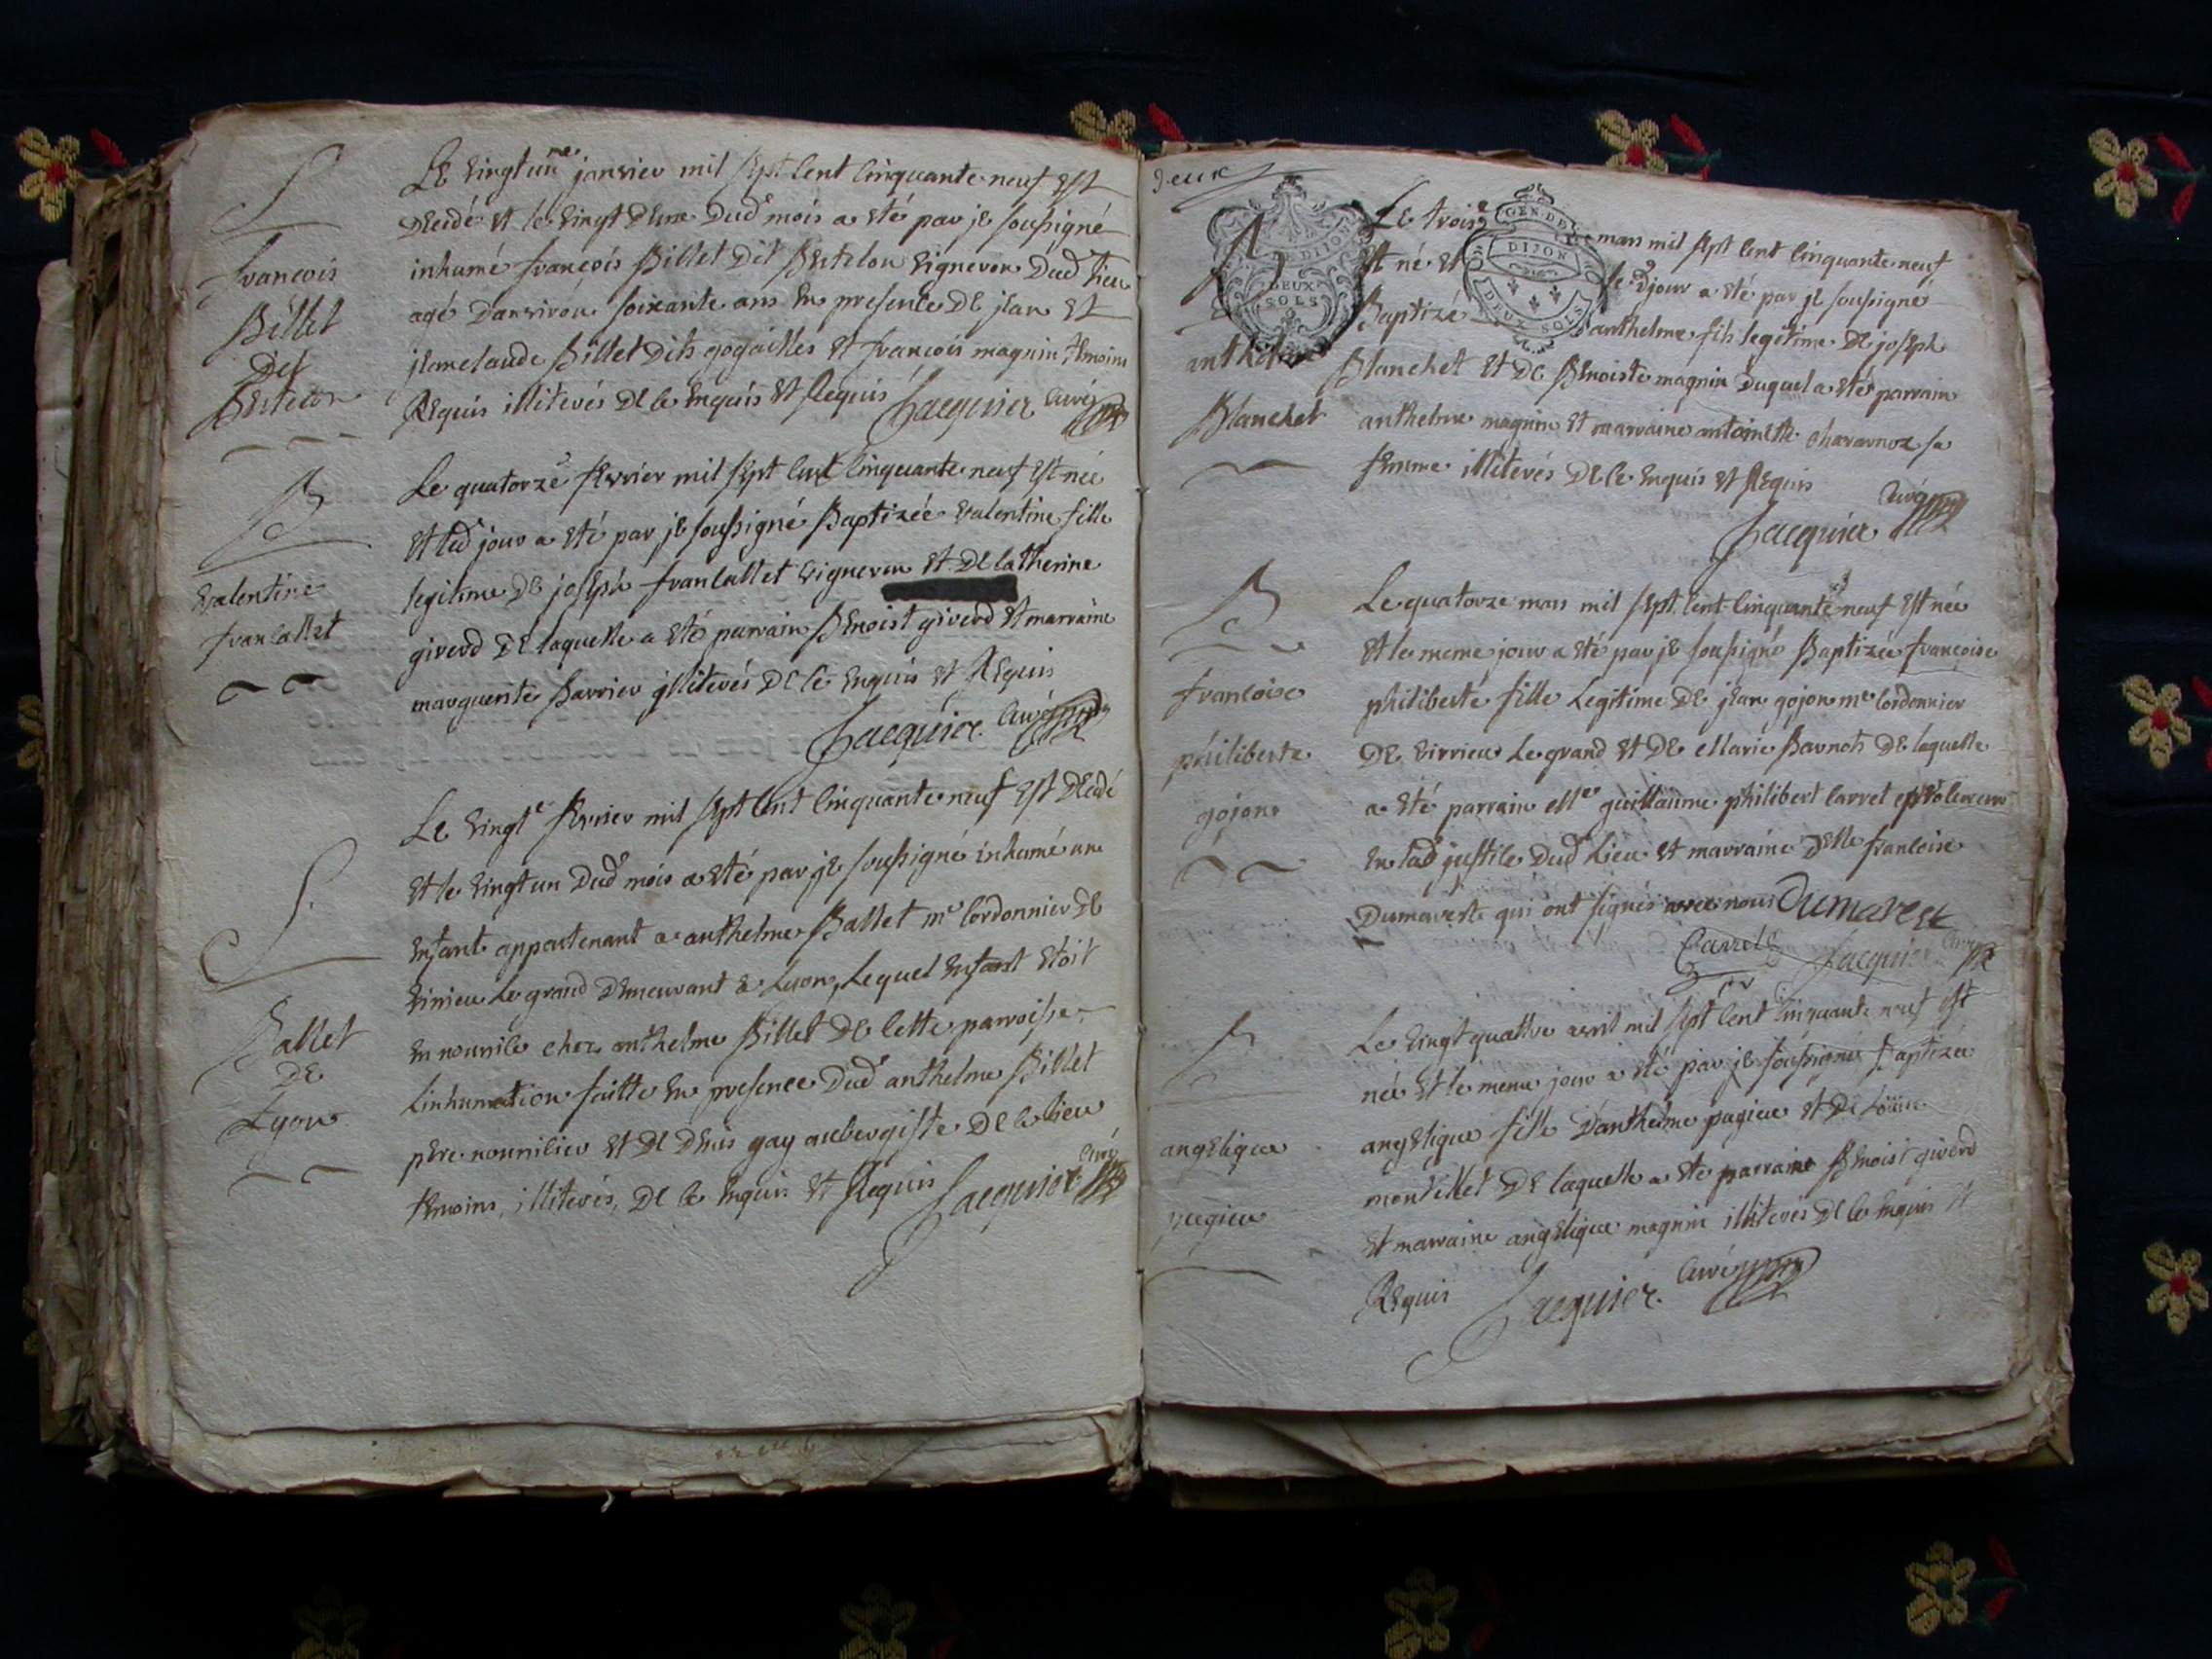 S
francois
Billet
Dit
Bertelon
Le vingt un.me janvier mil sept cent cinquante neuf est
decidé et le vingt deux dud. mois a eté par je soussigné
inhumé françois Billet dit Bertelon vigneron dud. lieu
agé d'anviron soixante ans en presence de jean et
jeanclaude Billet dits gogailles et francois magnin temoins
Requis illiterés de ce enquis et Requis Jacquier curé
B
valentine
francallet
Le quatorze fevrier mil sept cent cinquante neuf est née
et led. jour a eté par je soussigné Baptizée valentine fille
legitime de joseph francallet vigneron et de catherine
giverd de laquelle a eté parrain Benoist giverd et marraine
marguerite Barrier illiterés de ce enquis et Requis
Jacquier curé
S
Ballet
de
Lyon
Le vingt.e fevrier mil sept cent cinquante neuf est decidé
et le vingt un dud. mois a eté par je soussigné inhumé un
enfant appartenant a anthelme Ballet m.e cordonnier de
virieu le grand demeurant a Lyon, lequel enfant etoit
en nourrice chez anthelme Billet de cette parroisse
L'inhumation faitte en presence dud. anthelme Billet
pere nourricier et de denis gay aubergiste de ce lieu
temoins, illiterés, de ce enquis et Requis Jacquier curé
deux
GEN. DE DIJON
DEUX SOLS
GEN. DE
DIJON
DEUX SOLS
B
anthelme
Blanchet
Le trois.e mars mil sept cent cinquante neuf
est né et le d. jour a eté par je soussigné
Baptizé anthelme fils legitime de joseph
Blanchet et de Benoiste magnin duquel a eté parrain
anthelme magnin et marraine antoinette charavnoz sa
femme illiterés de ce enquis et Requis
Jacquier curé
B
francoise
philiberte
gojon
Le quatorze mars mil sept cent cinquante neuf est née
et le meme jour a eté par je soussigné Baptizée francoise
philiberte fille legitime de jean gojon m.e cordonnier
de virrieu le grand et de Marie Barnoth de laquelle
a eté parrain M.e guillaume philibert carret
en lad. justice dud. lieu et marraine d.elle francoise
Dumareste qui ont signés avec nous Dumarest
Carret Jacquier curé
B
angelique
pugieu
Le vingt quattre avril mil sept cent cinquante neuf est
née et le meme jour a eté par je soussigné Baptizée
angelique fille d'anthelme pugieu et de Louise
montillet de laquelle a eté parrain Benoist giverd
et marraine angelique magnin illiterés de ce enquis et
Requis Jacquier curé